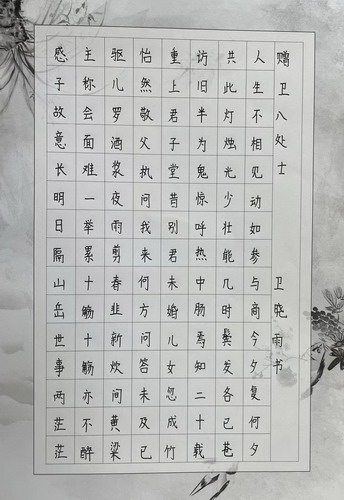 赠卫八处士 卫晓雨书
人生不相见动如参与商今夕复何夕
共此灯烛光少壮能几时鬓发各已苍
访旧半为鬼惊呼热中肠焉知二十载
重上君子堂昔别君未婚儿女忽成竹
怡然敬父执问我来何方问答未及已
驱儿罗酒浆夜雨剪春韭新炊间黄粱
主称会面难一举累十觞十觞亦不醉
感子故意长明日隔山岳世事两茫茫